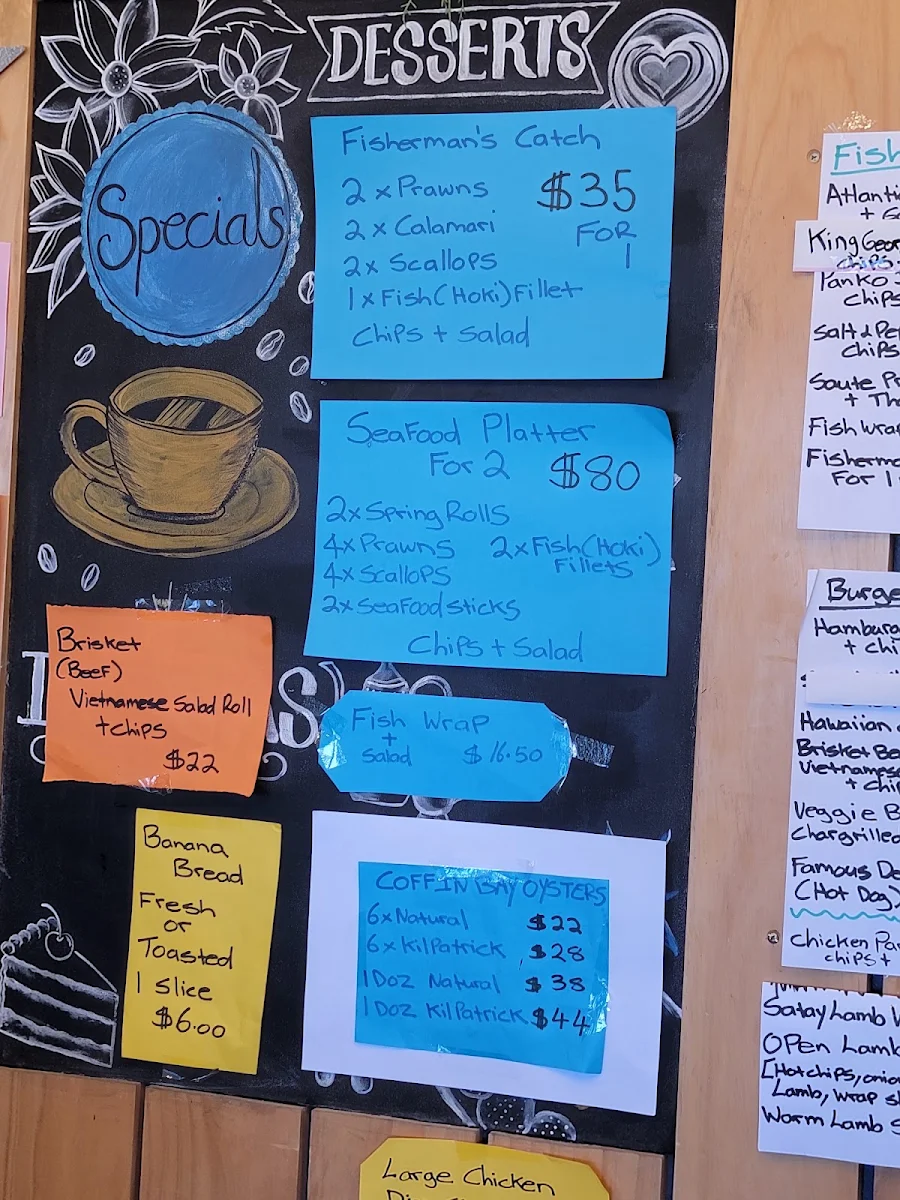 DESSERTS
Specials
Fisherman's Catch
2 x Prawns
2 x Calamari
2x Scallops
1 x Fish (Hoki) Fillet
Chips + Salad
$35
FOR
1
SeaFood Platter
For 2 $80
2x Spring Rolls
4x Prawns
4x Scallops
2x Seafood sticks
2x Fish (Hoki)
Fillets
Chips + Salad
Brisket
(Beef)
Vietnamese Salad Roll
+ chips
$22
Fish Wrap
+
Salad $16.50
Banana
Bread
Fresh
or
Toasted
1 Slice
$6.00
COFFIN BAY OYSTERS
6x Natural $22
6x KilPatrick $28
1 Doz Natural $38
1 Doz KilPatrick $44
Large Chicken
Fish
Atlanti
+
King Geor
chips
Panko
chips
Salt & Pe
chips
Saute Pr
+ Th
Fish Wra
Fisherma
For 1
Burge
Hamburg
+ chi
Hawaiian
Brisket Be
Vietnamese
+ chi
Veggie B
Chargrilled
Famous De
(Hot Dog)
Chicken Par
chips +
Satay Lamb
Open Lamb
[Hot chips, onio
Lamb, wrap s
Warm Lamb S